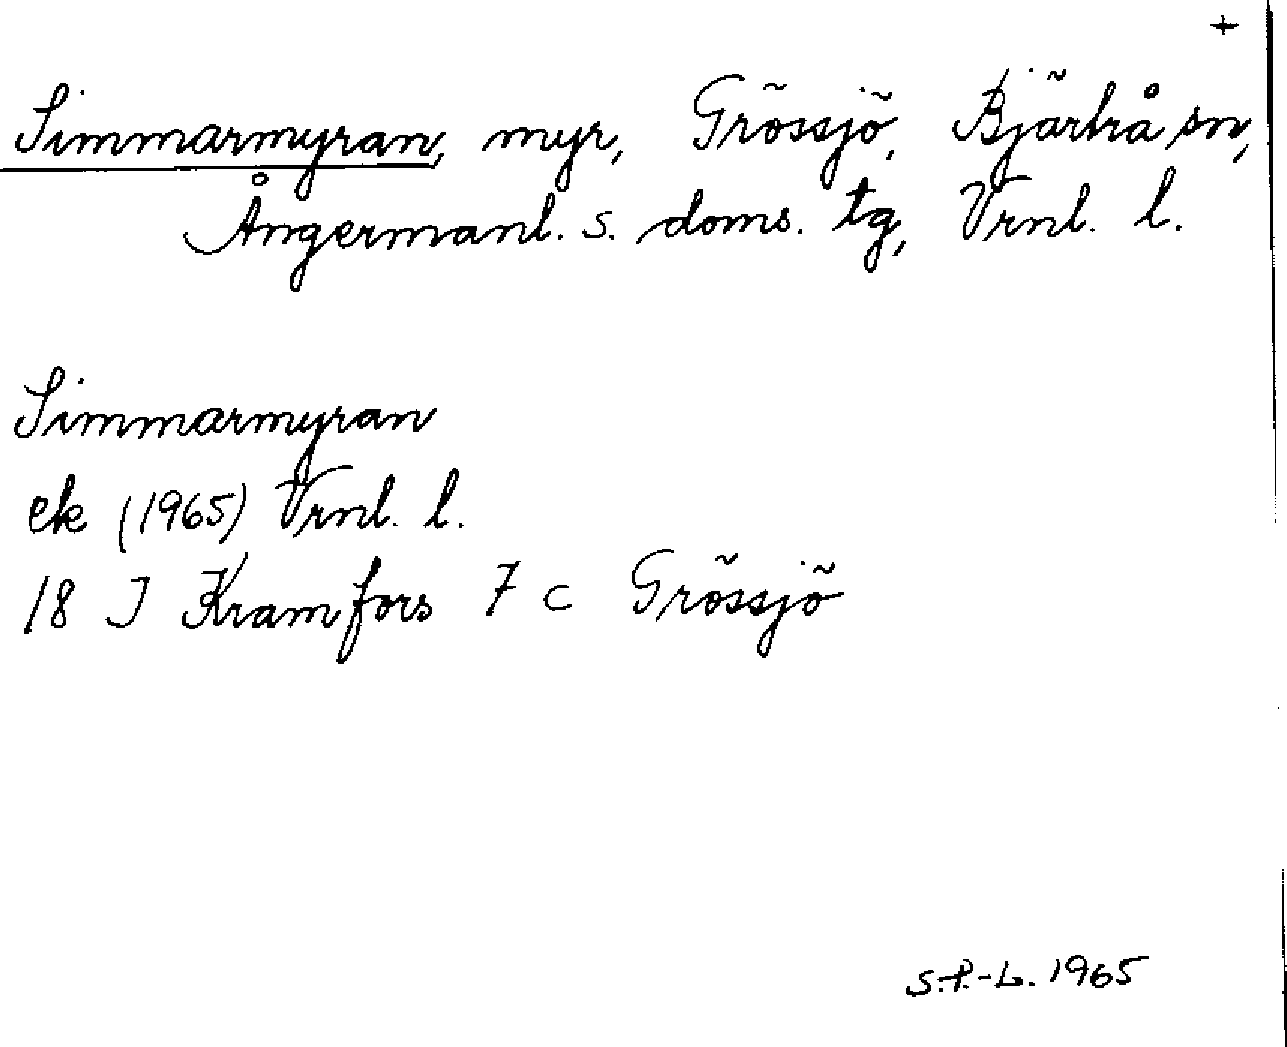 +
Simmarmyran, myr, Grössjö, Bjärtrå sn,
Ångermanl. s. doms. tg, Vrnl. l.
Simmarmyran
ek (1965) Vrnl. l.
18 J Kramfors 7 c Grössjö
S.P.-L. 1965